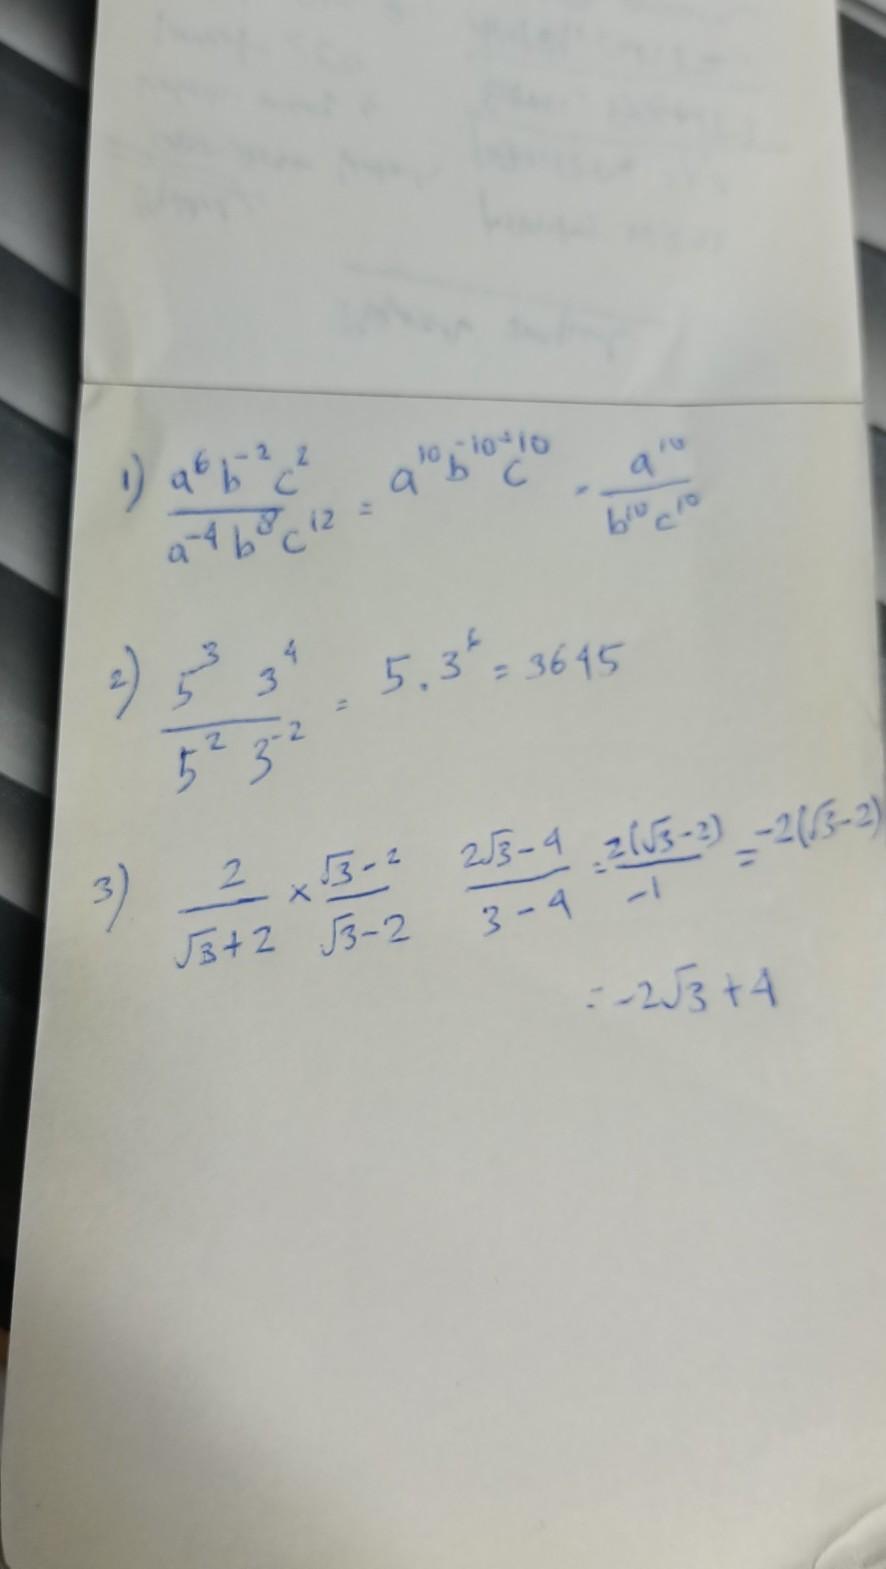 1) a⁶ b⁻² c² / a⁻⁴ b⁸ c¹² = a¹⁰ b⁻¹⁰ c⁻¹⁰ = a¹⁰ / b¹⁰ c¹⁰
2) 5³ 3⁴ / 5² 3⁻² = 5 . 3⁶ = 3645
3) 2 / √3+2 × √3-2 / √3-2 2√3-4 / 3-4 = 2(√3-2) / -1 = -2(√3-2)
= -2√3+4